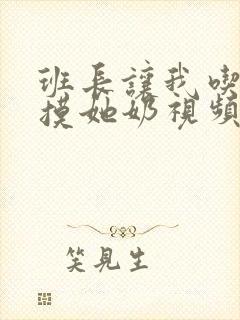 班長讓我喫
摸她奶視頻
笑見生